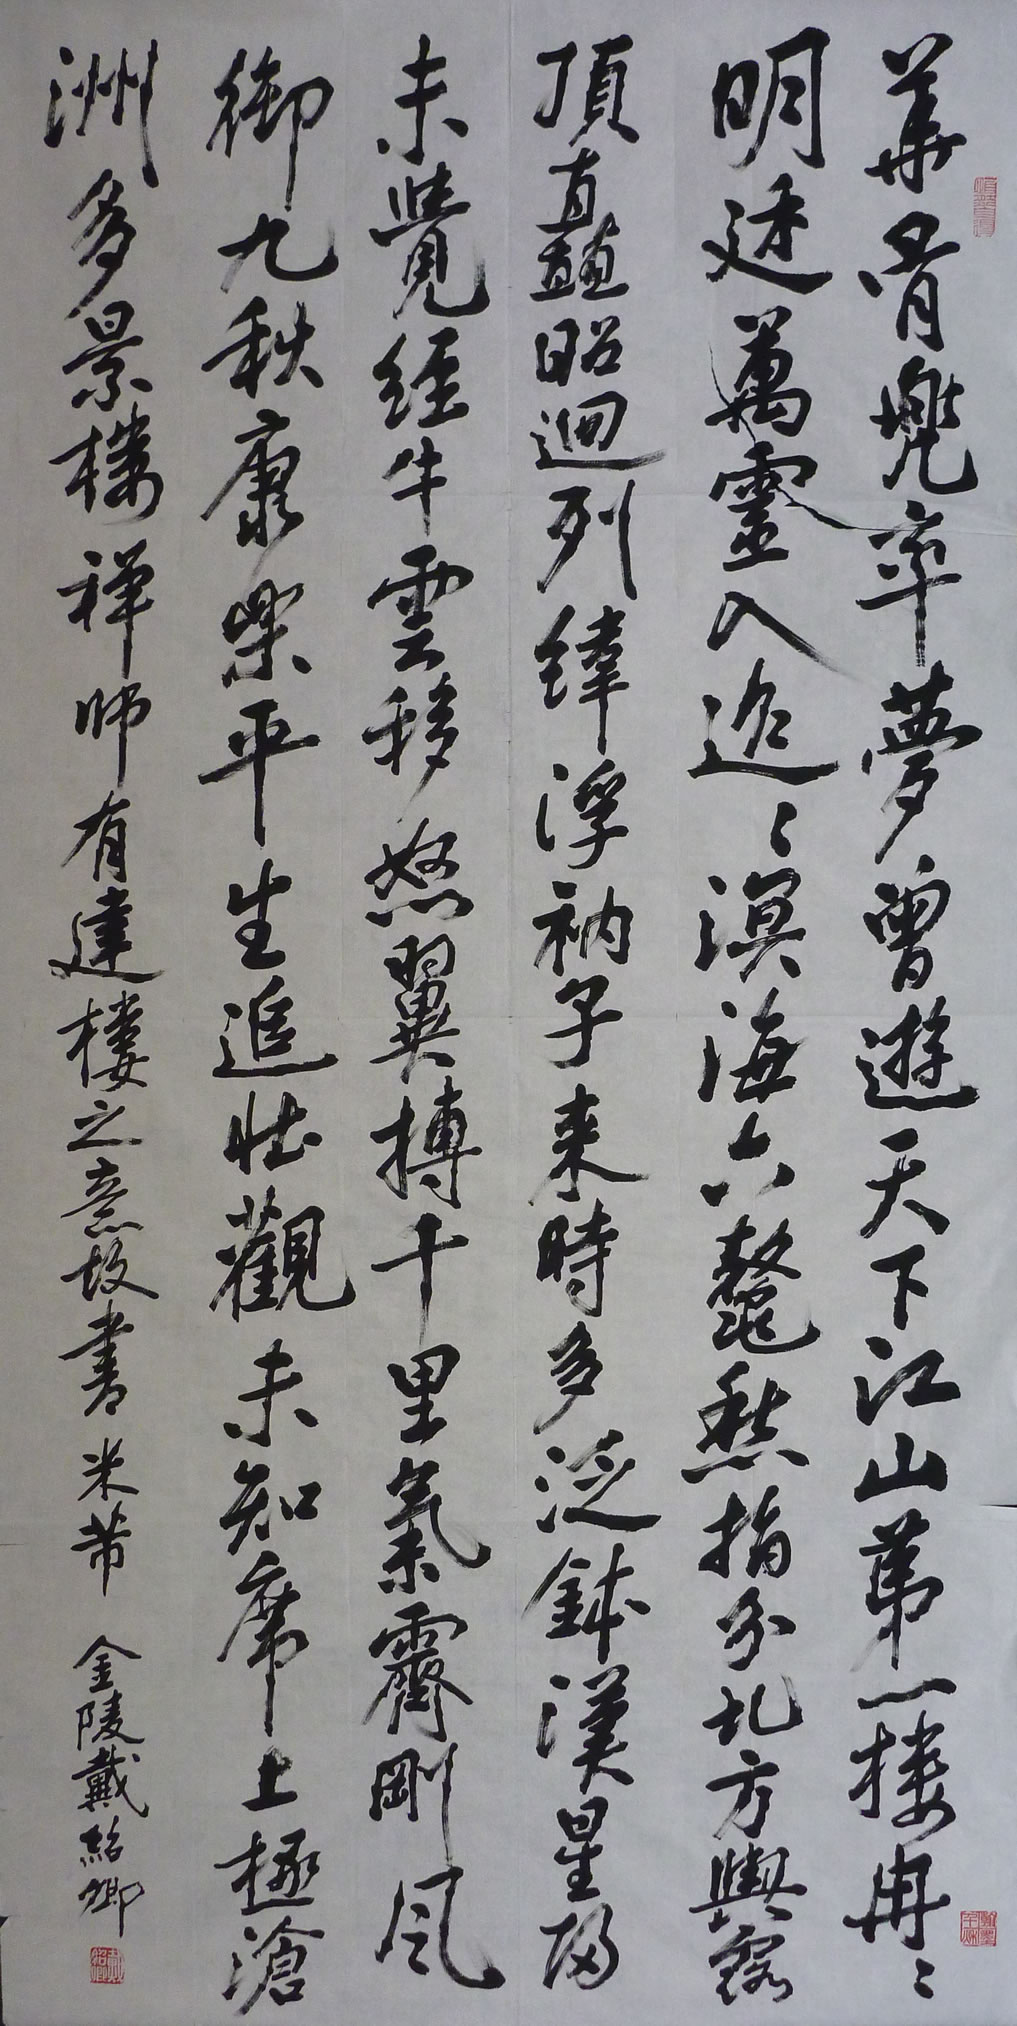 華胥兜率夢曾遊天下江山第一樓冉〻
明廷萬靈入迢〻溟海六鼇愁指分北方輿露
頂直矗昭迴列緯浮衲子來時多泛鉢漢星歸
未覺經牛雲移怒翼搏千里氣霽剛風
御九秋康樂平生追壯觀未知席上極滄
洲多景樓禪師有建樓之意故書米芾 金陵戴紹卿